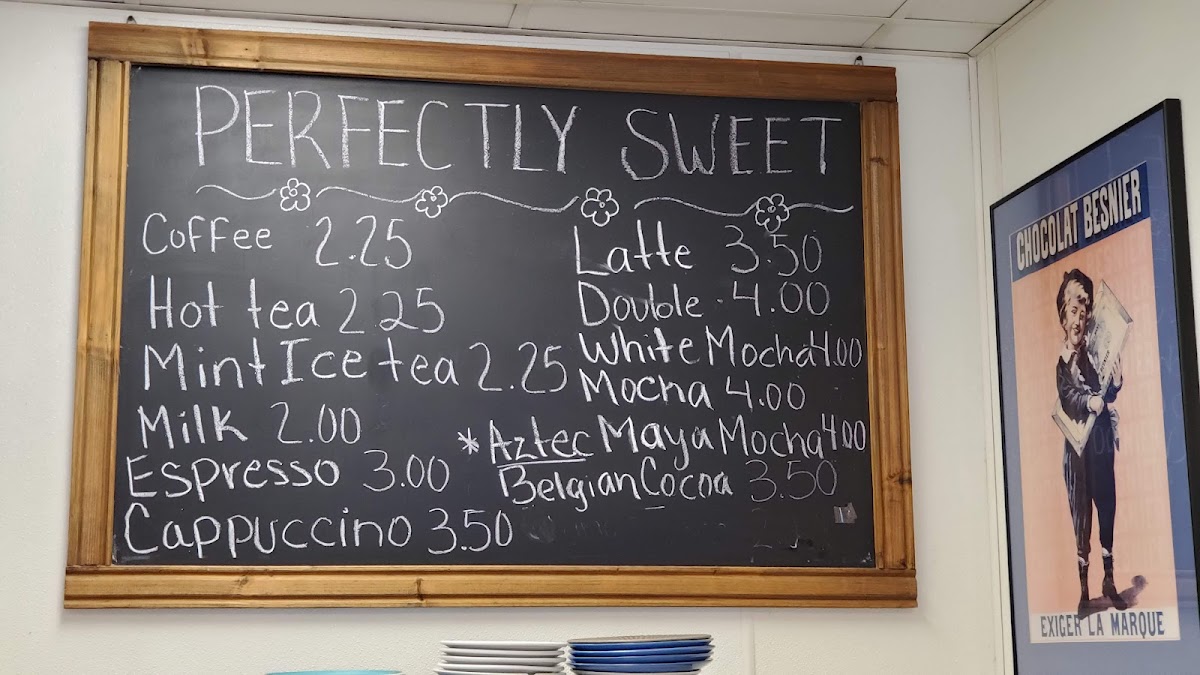 PERFECTLY SWEET
Coffee 2.25
Hot tea 2.25
Mint Ice tea 2.25
Milk 2.00
Espresso 3.00
Cappuccino 3.50
Latte 3.50
Double 4.00
White Mocha 4.00
Mocha 4.00
*Aztec Maya Mocha 4.00
Belgian Cocoa 3.50
CHOCOLAT BESNIER
EXIGER LA MARQUE